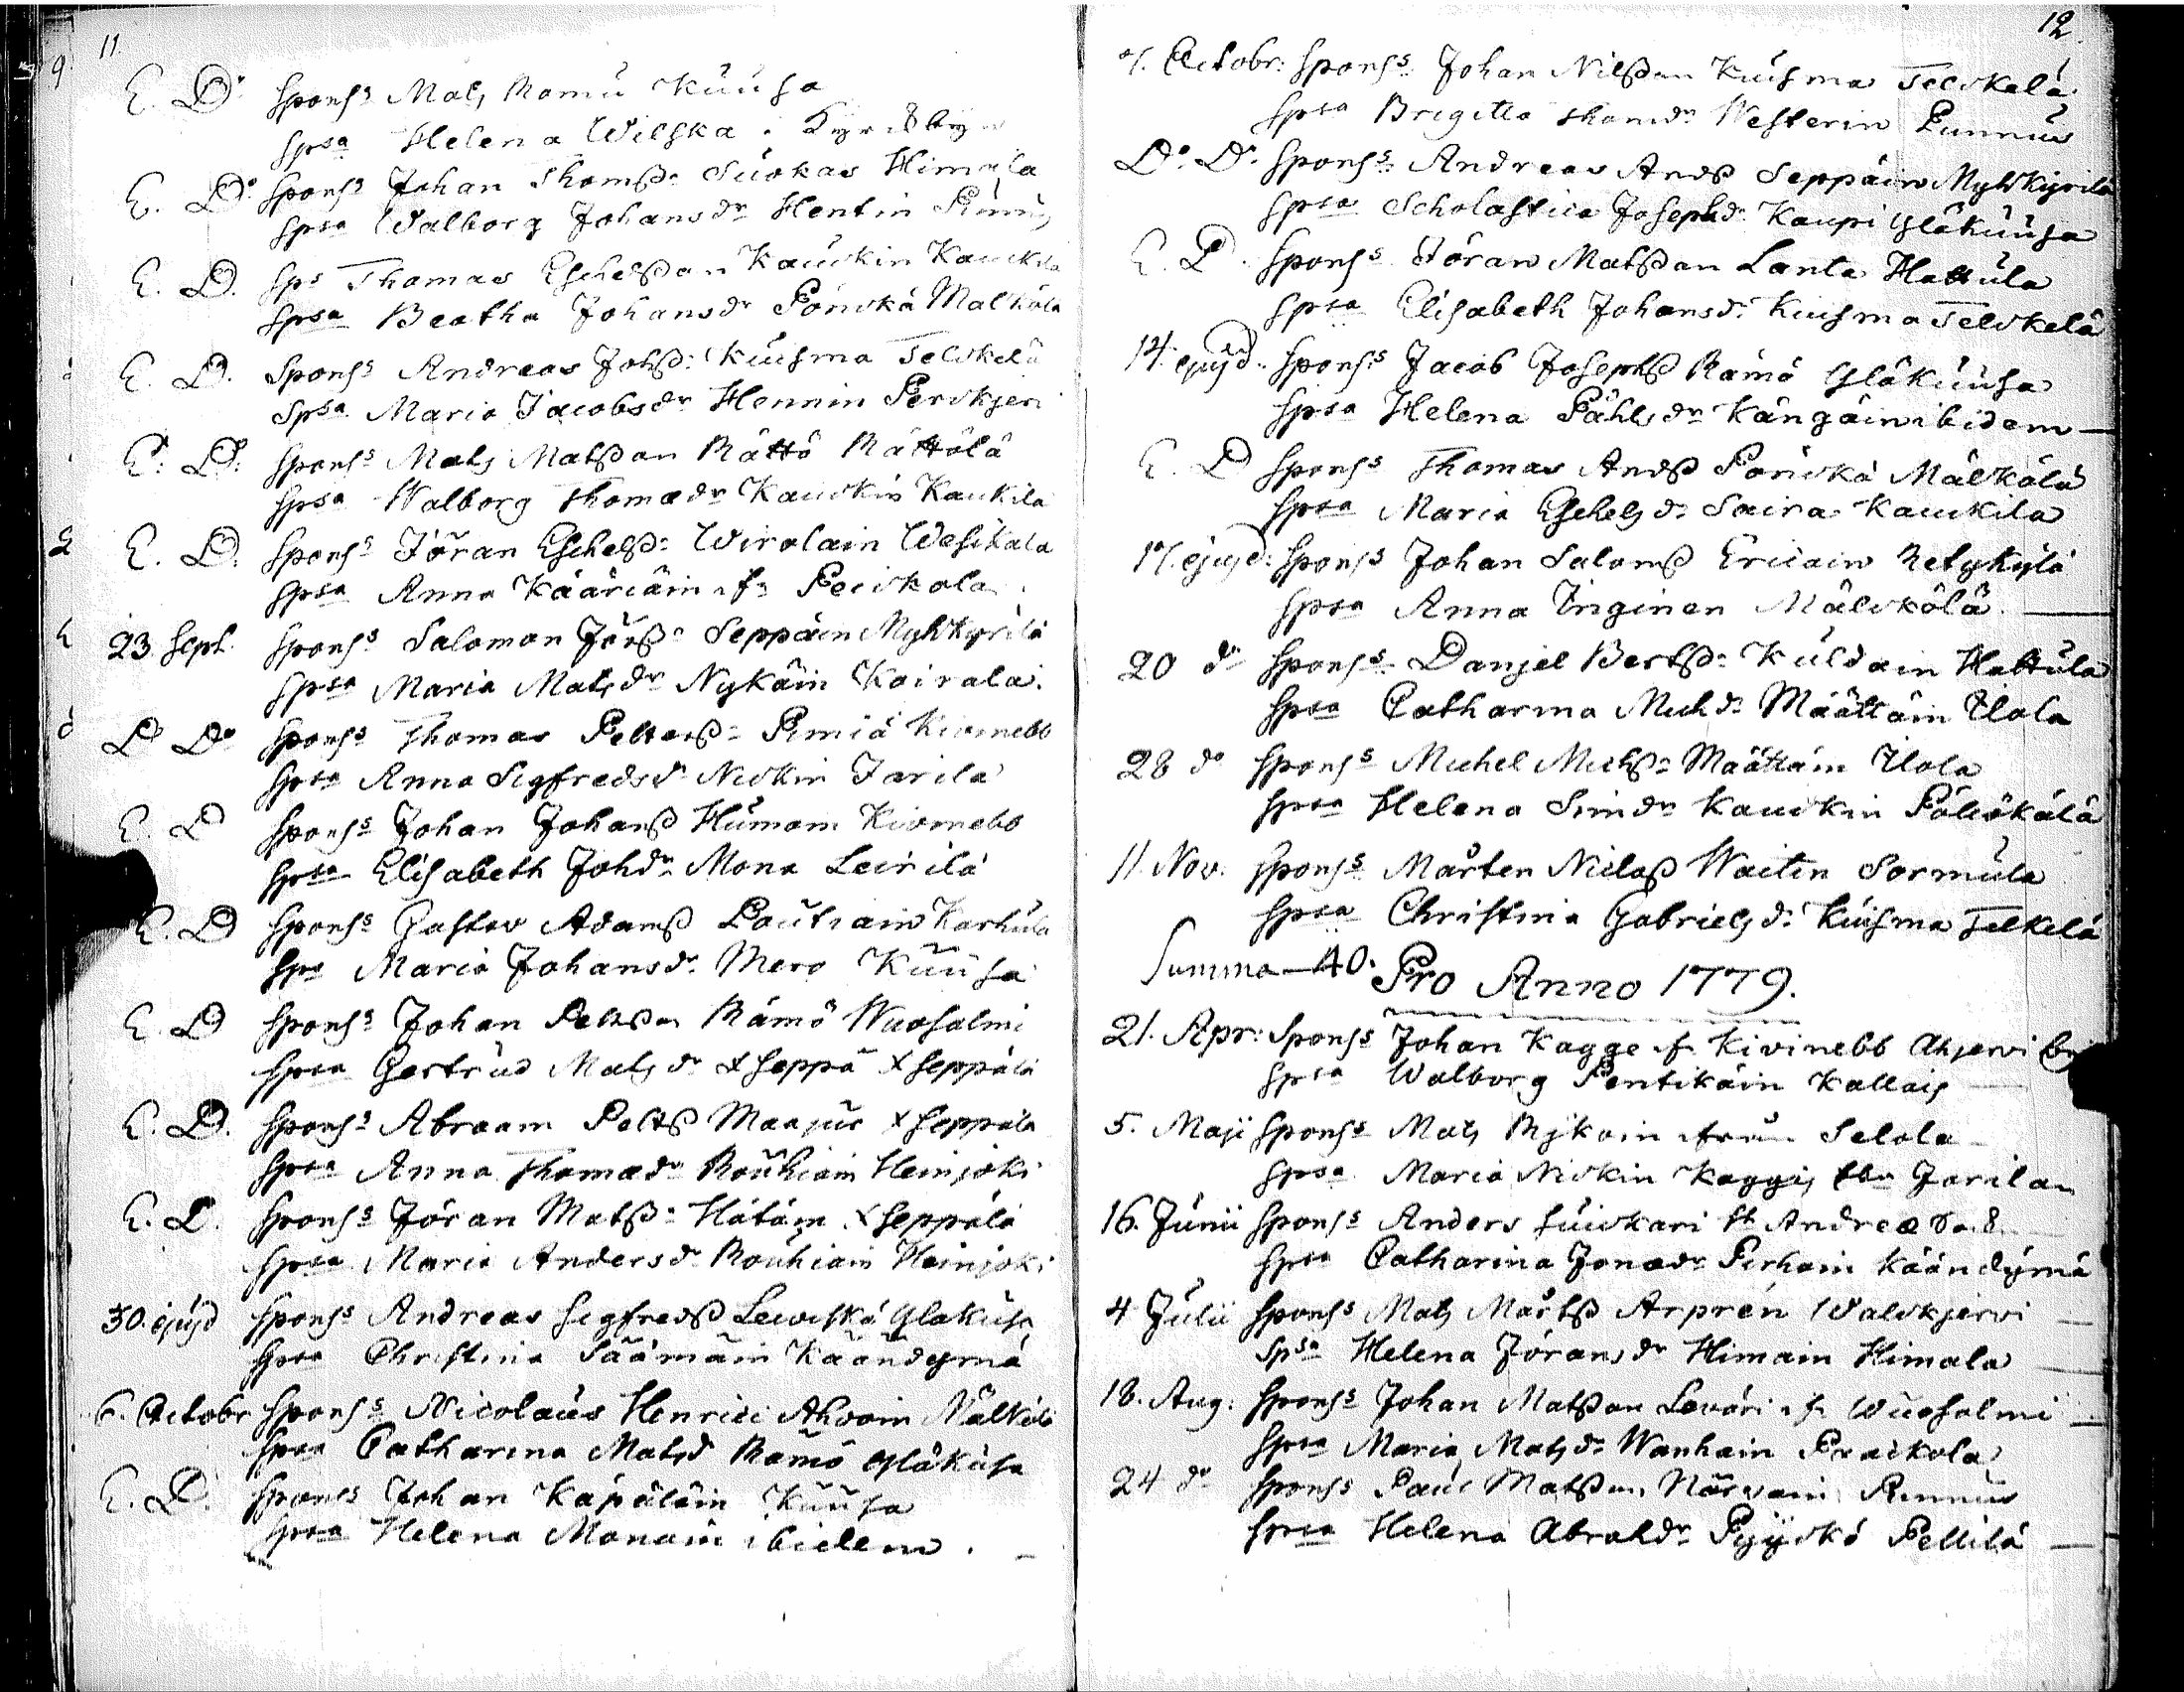 11.
E. Do Spons: Mats Ramu Kuusa
Spsa Helena Wilska. Kyrckby
E. Do Spons: Johan Thomß: Suokas Himala
Spsa Walborg Johansdr Hentin Pinnus
E. D. Sps Thomas Eschelßon Kaukin Kaukila
Spsa Beatha Johansdr Pönckä Mälkölä
E. D. Spons: Andreas Johß: Kuisma Telckelä
Spsa Maria Jacobsdr Hennin Perckjerf
E. D. Spons: Mats Matßon Rättö Rättölä
Spsa Walborg Thomædr Kauckin Kaukila
E. D. Spons: Jöran Eschelß: Wirolain Wesikala
Spsa Anna Kääriäin fr Peickola
23 Sept. Spons: Salomon Jörß: Seppäin Myhkyrilä
Spsa Maria Matsdr Nykäin Kairala.
D. Do Spons: Thomas Petterß: Pimiä Kivinebb
Spsa Anna Sigfredsdr Nickin Jarila
E. D Spons: Johan Johanß Humain Kivinebb
Spsa Elisabeth Johdr Mona Leinilä
E. D Spons: Gustav Adamß Pautiain Karhula
Sps Maria Johansdr Mero Kuusa
E. D Spons: Johan Petterßon Rämö Wuosalmi
Spsa Gertrud Matsdr Xseppä Xseppälä
E. D. Spons: Abraam Petterß Maajus Xseppälä
Spsa Anna Thomædr Rouhiain Heinjoki
E. D. Spons: Jöran Matß: Hätäin Xseppälä
Spsa Maria Andersdr Rouhiain Heinjoki
30. ejusd Spons: Andreas Sigfredß Leuiskä Yläkuusa
Spsa Christina Säämäin Käändymä
6. Octobr Spons: Nicolaus Henrici Ahvoin Mälkölä
Spsa Catharina Matsd Rämö Yläkusa
E. D. Spons Johan Kapiäläin Kuusa
Spsa Helena Monain ibidem.
12.
7. Octobr: Spons: Johan Nilßon Kuisma Telckelä
Spsa Brigitta Thomdr Westerin Punnus
Do. Do. Spons: Andreas Andß Seppäin Myhkyrilä
Spsa Scholastica Josephdr Kaupi Yläkuusa
E. D. Spons: Jöran Matßon Lanta Hattula
Spsa Elisabeth Johansdr Kuisma Telckelä
14. ejusd. Spons: Jacob Josephß Rämö Yläkuusa
Spsa Helena Påhlsdr Kängäin ibidem
E. D Spons: Thomas Andß Pönckä Mälkölä
Spsa Maria Eschelsdr Saira Kauckila
17. ejusd: Spons: Johan Salomß Ericain Retykylä
Spsa Anna Inginen Mälckölä
20 do Spons: Danjel Bertß: Kuldain Hattula
Spsa Catharina Michdr Määttäin Ilola
28 do Spons: Michel Michß: Määttäin Ilola
Spsa Helena Simdr Kauckin Pöllökälä
11. Nov. Spons: Mårten Niclaß Waitin Sormula
Spsa Christina Gabrielsdr Kuisma Telkelä
Summa 40.
Pro Anno 1779.
21. Apr: Spons: Johan Kagge fr Kivinebb Ahjervi by
Spsa Walborg Pentikäin Kallais
5. Maji Spons: Mats Rykain från Selola
Spsa Maria Nickin Kaggis Enka Jarilan
16. Junii Spons: Anders Suickari St Andreæ Sock.
Spsa Catharina Jonædr Pirhain Käändymä
4 Julii Spons: Mats Mårtß Arprén Walckjervi
Spsa Helena Jöransdr Himain Himala
18. Aug: Spons: Johan Matßon Lavari fr Wuosalmi
Spsa Maria Matsdr Wanhain Praikola
24 do Spons: Paul Matßon Närvain Punnus
Spsa Helena Abrahdr Pyyckö Pellilä